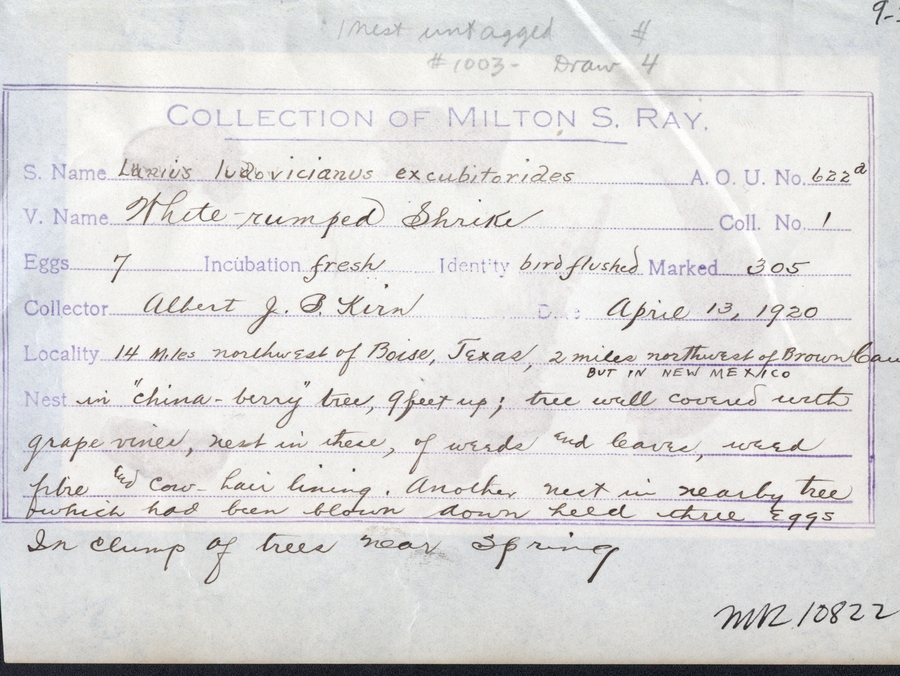 9-
1 nest untagged #
#1003- Draw 4
COLLECTION OF MILTON S. RAY.
S. Name Lanius ludovicianus excubitorides A. O. U. No. 622a
V. Name White-rumped Shrike Coll. No. 1
Eggs 7 Incubation fresh Identity bird flushed Marked 305
Collector Albert J. B. Kirn Date April 13, 1920
Locality 14 Miles northwest of Boise, Texas, 2 miles northwest of Brown
BUT IN NEW MEXICO
Nest in "china-berry" tree, 9 feet up; tree well covered with
grape vines, nest in these, of weeds and leaves, weed
fibre and cow-hair lining. Another nest in nearby tree
which had been blown down held three Eggs
In clump of trees near Spring
MR 10822